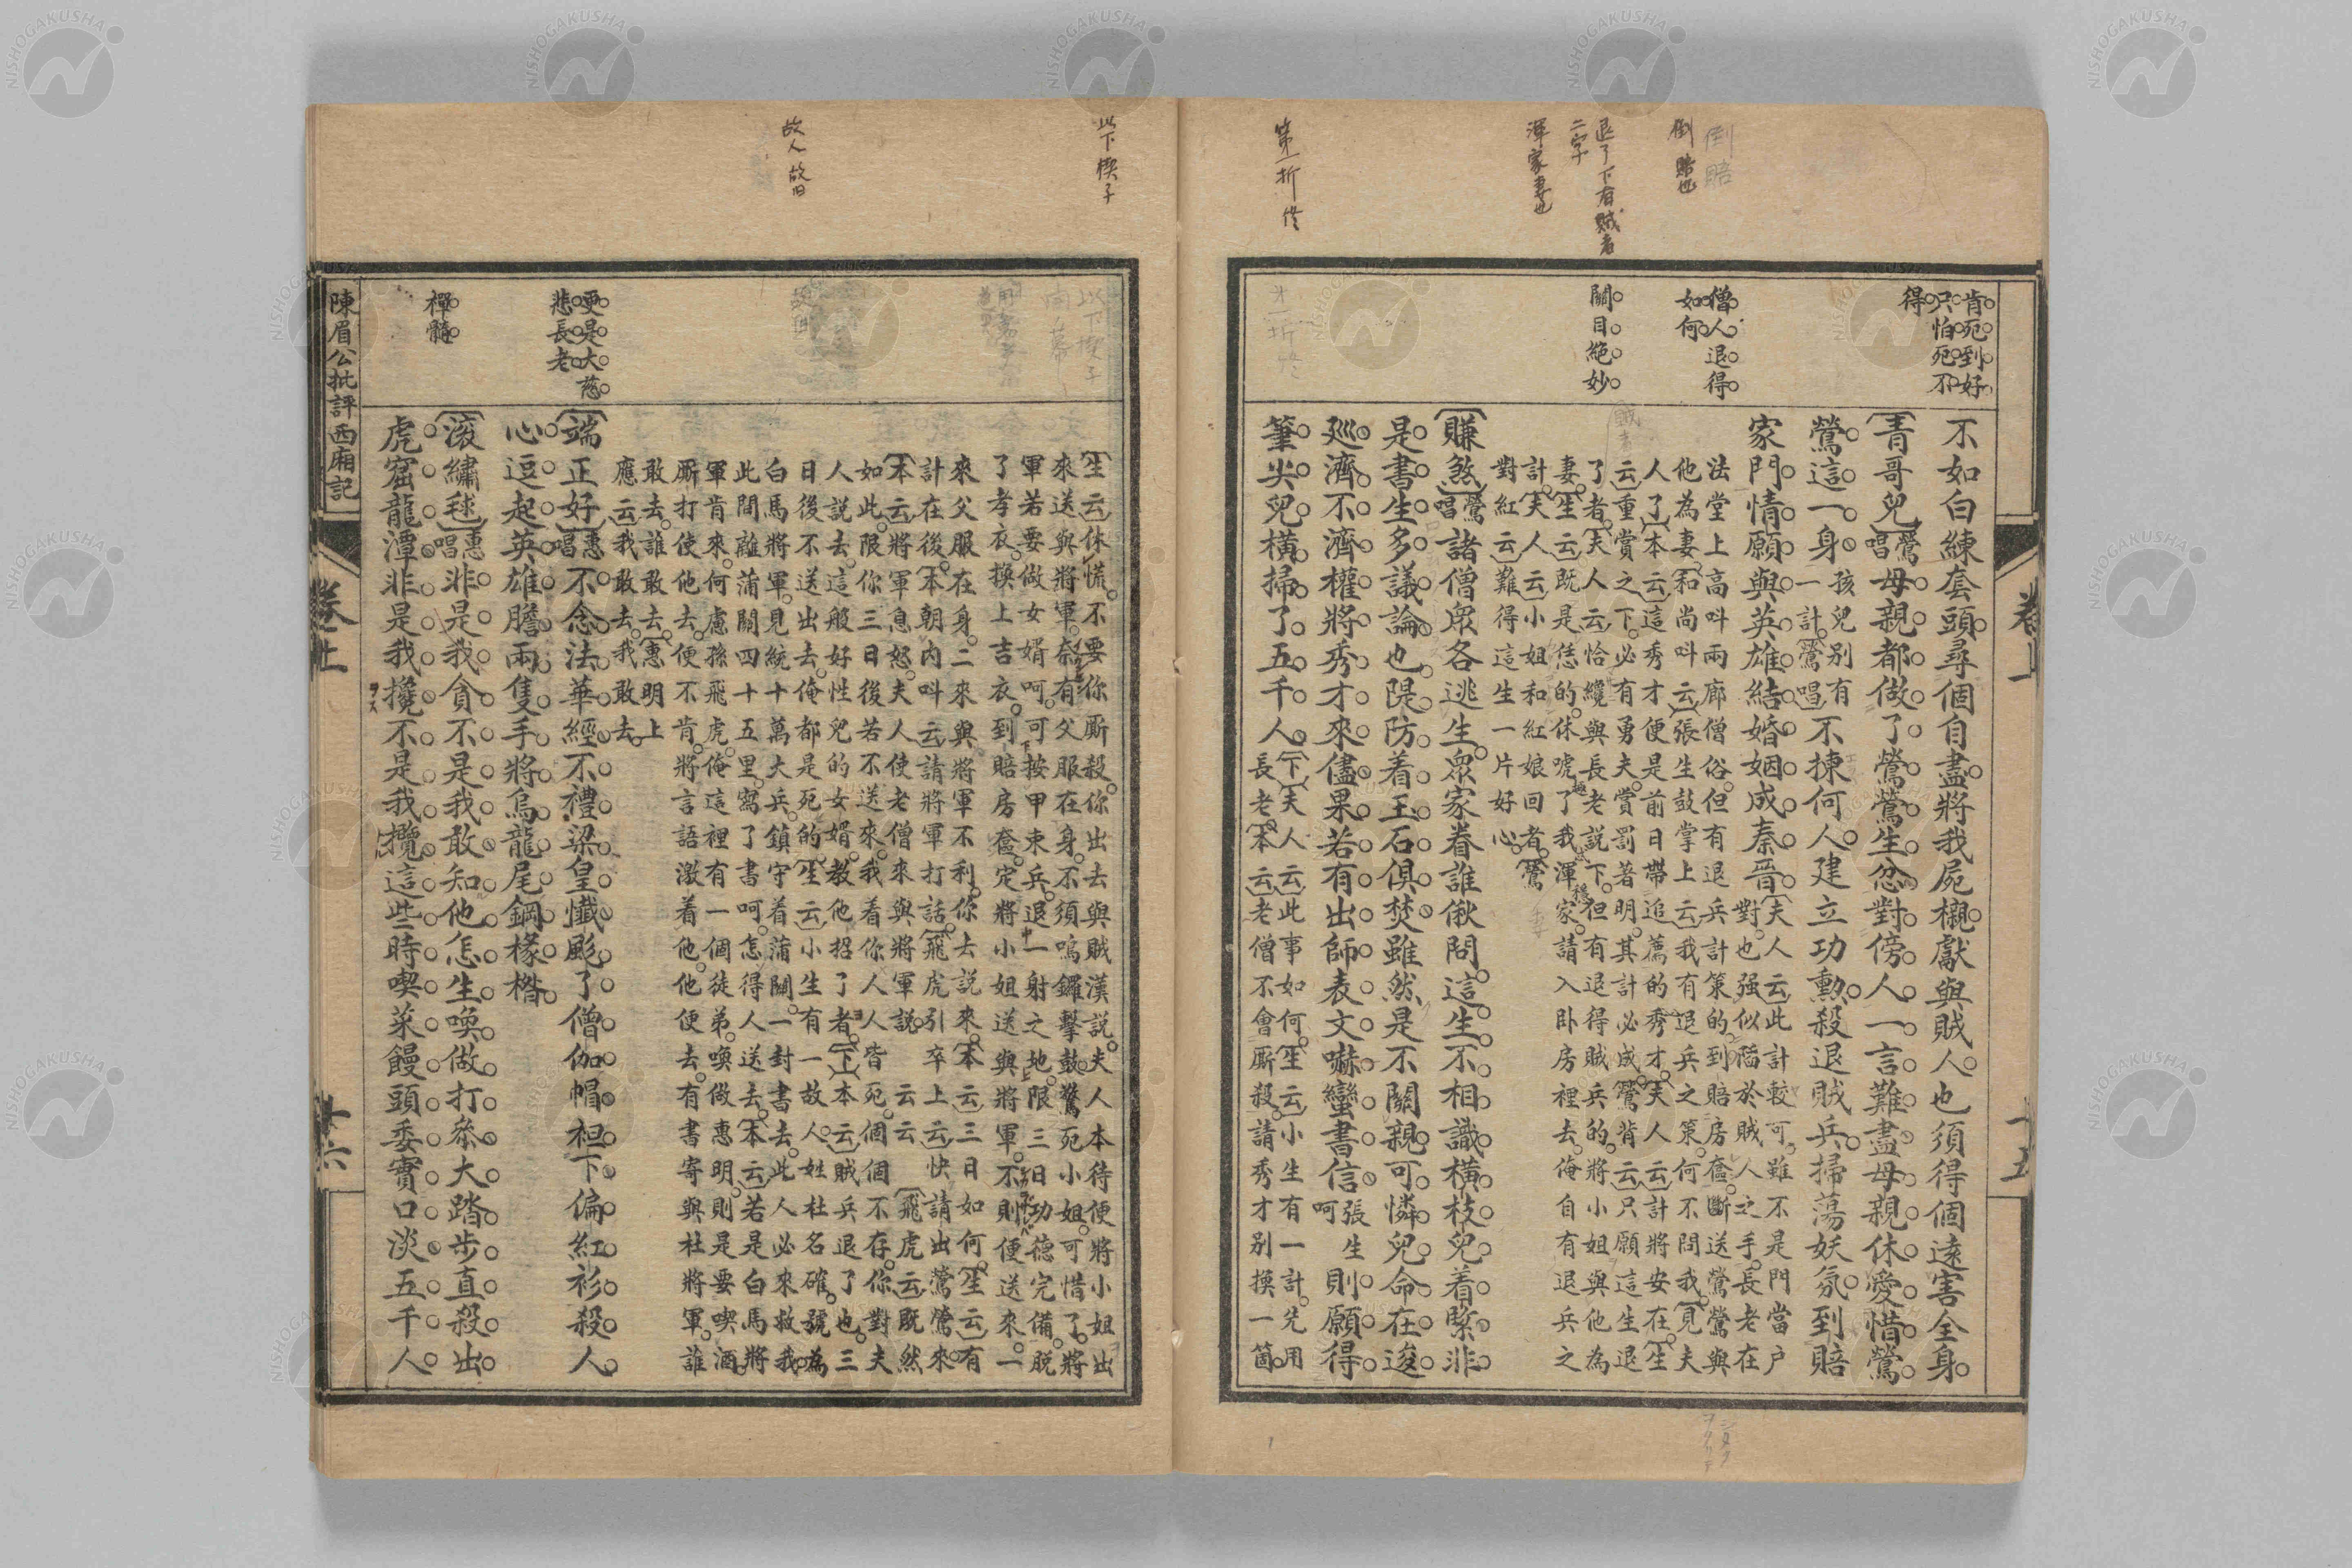 倒賠
倒 賠也
退了下有賊者
二字
渾家妻也
第一折終
肯死到好
只怕死不
得
僧人退得
如何
關目絕妙
卷上
十五
不如白練套頭尋個自盡將我屍櫬獻與賊人也須得個遠害全身
〔青哥兒〕鶯唱母親都做了鶯鶯生忿對傍人一言難盡母親休愛惜鶯
鶯這一身孩兒别有一計〔鶯唱〕不揀何人建立功勲殺退賊兵掃蕩妖氛到賠
家門情願與英雄結婚姻成秦晉〔夫人云〕此計較可雖不是門當户對也强似陷於賊人之手長老在
法堂上高叫兩廊僧俗但有退兵計策的到賠房奩斷送鶯鶯與
他為妻〔和尚叫云〕張生鼓掌上云我有退兵之策何不問我〔見夫
人了〕〔本云〕這秀才便是前日帶追薦的秀才〔夫人云〕計將安在〔生
云〕重賞之下必有勇夫賞罰若明其計必成〔鶯背云〕只願這生退
了者〔夫人云〕恰纔與長老説下但有退得賊兵的將小姐與他為
妻〔生云〕既是恁的休唬了我渾家請入卧房裡去俺自有退兵之
計〔夫人云〕小姐和紅娘回者〔鶯
對紅云〕難得這生一片好心
〔賺煞〕鶯唱諸僧衆各逃生衆家眷誰偢問這生不相識橫枝兒着緊非
是書生多議論也隄防着玉石俱焚雖然是不關親可憐兒命在逡
廵濟不濟權將秀才來儘果若有出師表文嚇蠻書信張生呵則願得
筆尖兒橫掃了五千人〔下〕〔夫人云〕此事如何〔生云〕小生有一計先用長老〔本云〕老僧不會厮殺請秀才别換一箇
此下楔子
故人故旧
更是大慈
悲長老
禪髓
〔生云〕休慌不要你厮殺你出去與賊漢説夫人本待便將小姐出
來送與將軍奈有父服在身不須鳴鑼擊鼓驚死小姐可惜了將
軍若要做女婿呵可按甲束兵退一射之地限三日功德完備脱
了孝衣換上吉衣到賠房奩定將小姐送與將軍不則便送來一
來父服在身二來與將軍不利你去説來〔本云〕三日如何〔生云〕有
計在後〔本朝内叫云〕請將軍打話〔飛虎引卒上云〕快請出鶯鶯來
〔本云〕將軍息怒夫人使老僧來與將軍説云云〔飛虎云〕既然
如此限你三日後若不送來我着你人人皆死個個不存你對夫
人説去這般好性兒的女婿教他招了者〔下〕〔本云〕賊兵退了也三
日後不送出去俺都是死的〔生云〕小生有一故人姓杜名確號為
白馬將軍見統十萬大兵鎮守着蒲關一封書去此人必來救我
此間離蒲關四十五里寫了書呵怎得人送去〔本云〕若是白馬將
軍肯來何慮孫飛虎俺這裡有一個徒弟喚做惠明則是要喫酒
厮打使他去便不肯將言語激着他他便去有書寄與杜將軍誰
敢去誰敢去〔惠明上
應云〕我敢去我敢去
〔端正好〕惠唱不念法華經不禮梁皇懺颩了僧伽帽袒下偏紅衫殺人
心逗起英雄膽兩隻手將烏龍尾鋼椽㨡
〔滚繡毬〕惠唱非是我貪不是我敢知他怎生喚做打叅大踏步直殺出
虎窟龍潭非是我攙不是我攬這些時喫菜饅頭委實口淡五千人
陳眉公批評西廂記
卷上
十六